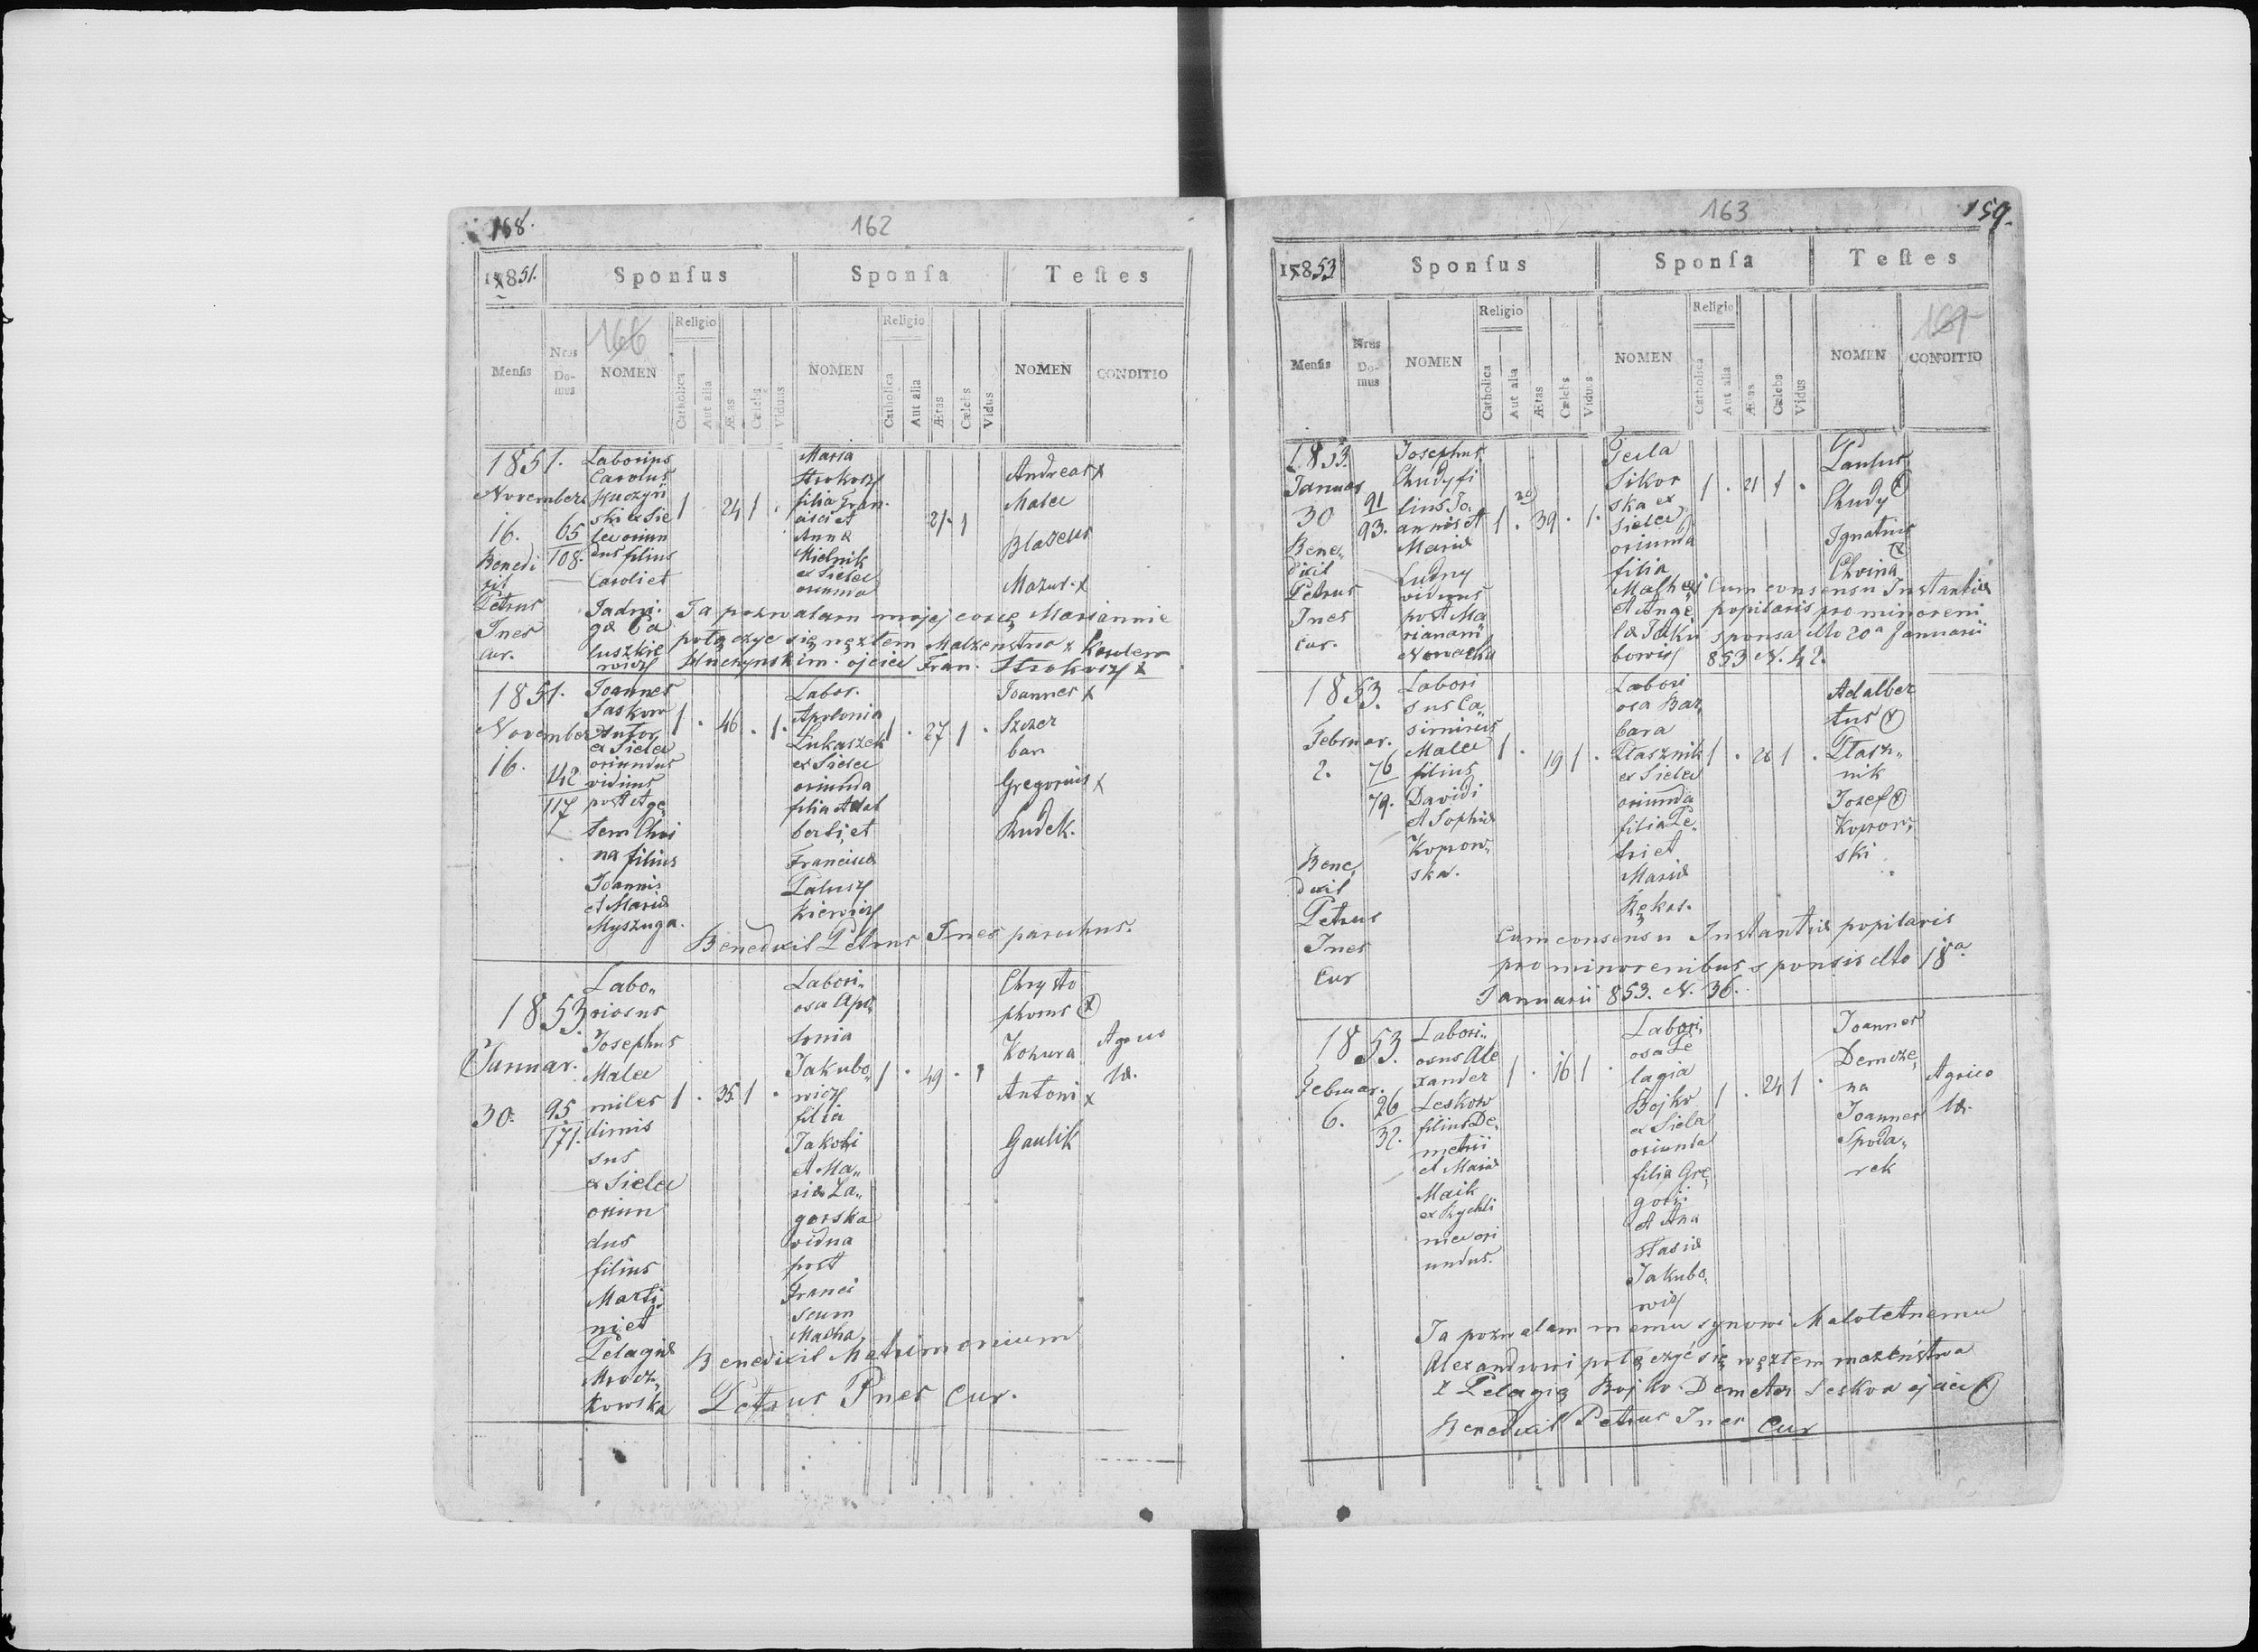 158.
162
17851.
Sponſus
Sponſa
Teſtes
Menſis
Nrus Domus
166
NOMEN
Religio
Catholica
Aut alia
Ætas
Cælebs
Viduus
NOMEN
Religio
Catholica
Aut alia
Ætas
Cælebs
Vidus
NOMEN
CONDITIO
1851.
November
16.
Benedi
xit
Petrus
Ines
Cur.
65
108.
Laborius
Carolus
ski ex Sie
lec oriun
dus filius
Caroli et
Jadwi
gæ Pa
luszkie
wicz
1 . 24 1 .
Maria
Strokosz
filia Fran
cisci et
Anna
Mielnik
ex Sielec
oriunda
21 . 1
Andreas x
Malec
Blazeus
Mazur. x
Ja pozwalam mojej corce Mariannie
połączyć się węzłem Małzenstwa z Karolem
ojciec Fran. Strokosz x
1851.
November
16.
142
117
Joannes
Jaskow
ex Sielec
oriundus
viduus
post Age
tem Choi
na filius
Joannis
et Mariæ
Myszuga.
1 . 46 . 1.
Labor.
Apolonia
Łukaszek
ex Sielec
oriunda
filia Adal
berti et
Franciscæ
Palusz
kiewicz
1 . 27 1 .
Joannes x
Szczer
ban
Gregorius x
Dudek.
Benedixit Petrus Ines parochus.
1853.
Januar.
30.
95
171.
Labo„
riosus
Josephus
Malec
miles
dimis
sus
ex Sielec
oriun
dus
filius
Marti
ni et
Pelagiæ
Mrocz„
kowska
1 . 35 1 .
Labori„
osa Apo
lonia
Jakubo„
wicz
filia
Jakobi
et Ma„
riæ Za„
gorska
vidua
post
Franci
scum
Macha
1 . 49 . 1
Chrysto
phorus x
Kokura
Antoni x
Gaulik
Agrico
læ.
Benedixit Matrimonium
Petrus Ines Cur.
163
159.
17853
Sponſus
Sponſa
Teſtes
Menſis
Nrus Domus
NOMEN
Religio
Catholica
Aut alia
Ætas
Cælebs
Viduus
NOMEN
Religio
Catholica
Aut alia
Ætas
Cælebs
Vidus
NOMEN
CONDITIO
1853.
Januar
30
Bene„
dixit
Petrus
Ines
Cur.
91
93.
Josephus
Chudy fi
lius Jo„
annis et
Mariæ
Ludwy
viduus
post Ma
riannam
Nowacka
1 . 39 . 1.
Tecla
Sikor
ska ex
Sielec
oriunda
filia
Mathei
et Ange
læ Jaku
bowicz
1 . 21 1 .
Paulus
Chudy x
Ignatius
Choina x
Cum consensu Instantiæ
popilaris pro minoreni
sponsa dto 20a Januarii
853 N. 42.
1853.
Februar.
2.
Bene„
dixit
Petrus
Ines
Cur
76
79.
Labori
sus Ca„
simirus
Malec
filius
Davidi
et Sophiæ
Koprow„
ska.
1 . 19 1 .
Labori
osa Bar„
bara
Ptasznik
ex Sielec
oriunda
filia Pe„
tri et
Mariæ
Kękos.
1 . 20 1 .
Adalber
tus x
Ptasz„
nik
Jozef x
Koprow„
ski
Cum consensu Instantiæ popilaris
pro minorenibus sponsis dto 18a
Januarii 853. N. 36.
1853.
Februar.
6.
26
32.
Labori„
osus Ale
xander
Leskow
filius De„
metrii
et Mariæ
Maik
ex Rychli
nec ori
undus.
1 . 16 1 .
Labori„
osa Pe
lagia
Bojko
ex Sielec
oriunda
filia Gre„
gorii
et Ana
stasiæ
Jakubo„
wicz
1 . 24 1 .
Joannes
Demcze„
na
Joannes
Spoda„
rek
Agrico
læ.
Ja pozwalam memu synowi Małoletnemu
Alexandrowi połączyć się węzłem mazeństwa
z Pelagią Bojko. Demeter Leskow ojciec x
Benedixit Petrus Ines Cur